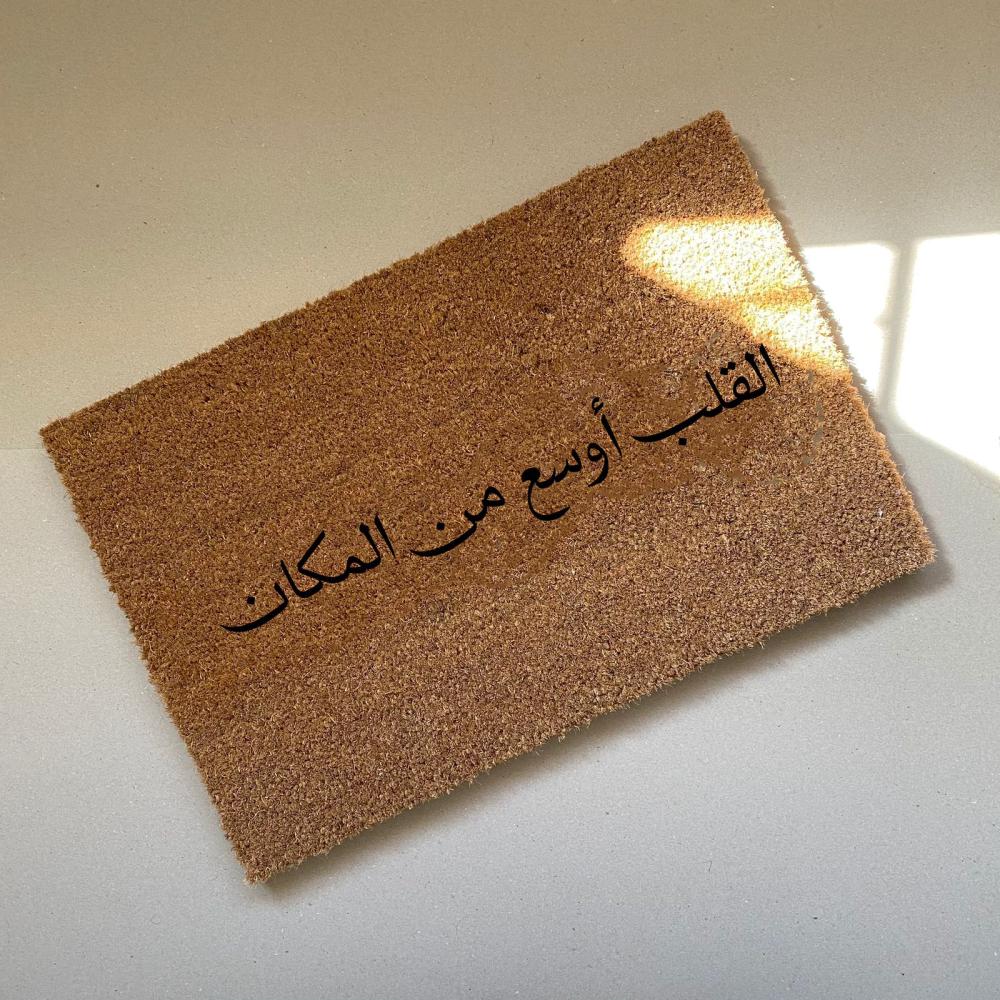 القلب أوسع من المكان